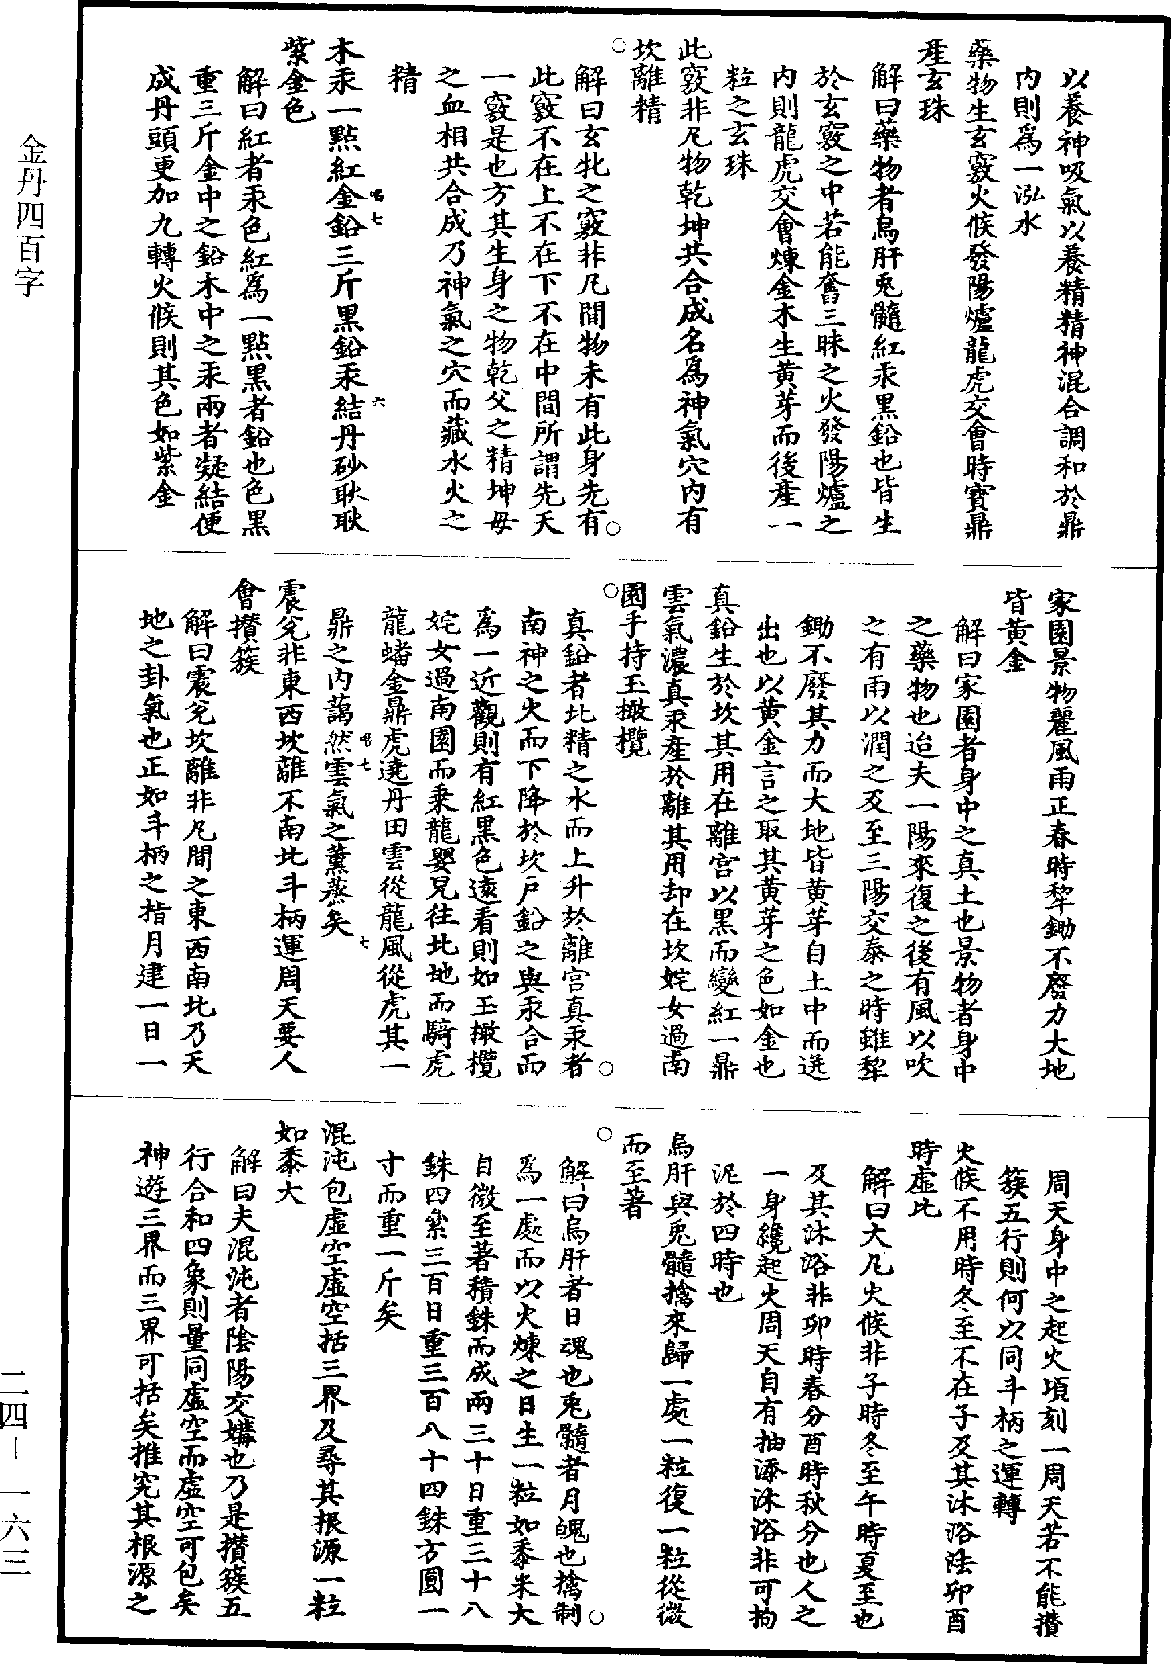 以養神吸氣以養精精神混合調和於鼎
内則爲一泓水
藥物生玄竅火候發陽爐龍虎交會時寳鼎
産玄珠
解曰藥物者烏肝兎髓紅汞黑鉛也皆生
於玄竅之中若能奮三昧之火發陽爐之
内則龍虎交會煉金木生黄芽而後産一
粒之玄珠
此竅非凡物乾坤共合成名爲神氣穴内有
坎離精
○
解曰玄牝之竅非凡間物未有此身先有
此竅不在上不在下不在中間所謂先天
一竅是也方其生身之物乾父之精坤母
之血相共合成乃神氣之穴而藏水火之
精
木汞一點紅金鉛三斤黑鉛汞結丹砂耿耿
紫金色
解曰紅者汞色紅爲一點黑者鉛也色黑
重三斤金中之鉛木中之汞兩者凝結便
成丹頭更加九轉火候則其色如紫金
家園景物麗風雨正春時犂鋤不廢力大地
皆黄金
解曰家園者身中之真土也景物者身中
之藥物也迨夫一陽來復之後有風以吹
之有雨以潤之及至三陽交泰之時雖犂
鋤不廢其力而大地皆黄芽自土中而迸
出也以黄金言之取其黄芽之色如金也
真鉛生於坎其用在離宫以黑而變紅一鼎
雲氣濃真汞産於離其用却在坎姹女過南
園手持玉橄欖
○
真鉛者北精之水而上升於離宫真汞者
南神之火而下降於坎戸鉛之與汞合而
爲一近觀則有紅黑色遠看則如玉橄欖
姹女過南園而乘龍嬰兒往北地而騎虎
龍蟠金鼎虎遶丹田雲從龍風從虎其一
鼎之内藹然雲氣之薰蒸矣
震兊非東西坎離不南北斗柄運周天要人
會攅簇
解曰震兊坎離非凡間之東西南北乃天
地之卦氣也正如斗柄之指月建一日一
周天身中之起火頃刻一周天若不能攅
簇五行則何以同斗柄之運轉
火候不用時冬至不在子及其沐浴法卯酉
時虚比
解曰大凡火候非子時冬至午時夏至也
及其沐浴非卯時春分酉時秋分也人之
一身纔起火周天自有抽添沐浴非可拘
泥於四時也
烏肝與兎髓擒來歸一處一粒復一粒從微
而至著
○
解曰烏肝者日魂也兎髓者月魄也擒制
爲一處而以火煉之日生一粒如黍米大
自微至著積銖而成兩三十日重三十八
銖四絫三百日重三百八十四銖方圓一
寸而重一斤矣
混沌包虚空虚空括三界及尋其根源一粒
如黍大
解曰夫混沌者陰陽交媾也乃是攅簇五
行合和四象則量同虚空而虚空可包矣
神遊三界而三界可括矣推究其根源之
金丹四百字
二四-一六三